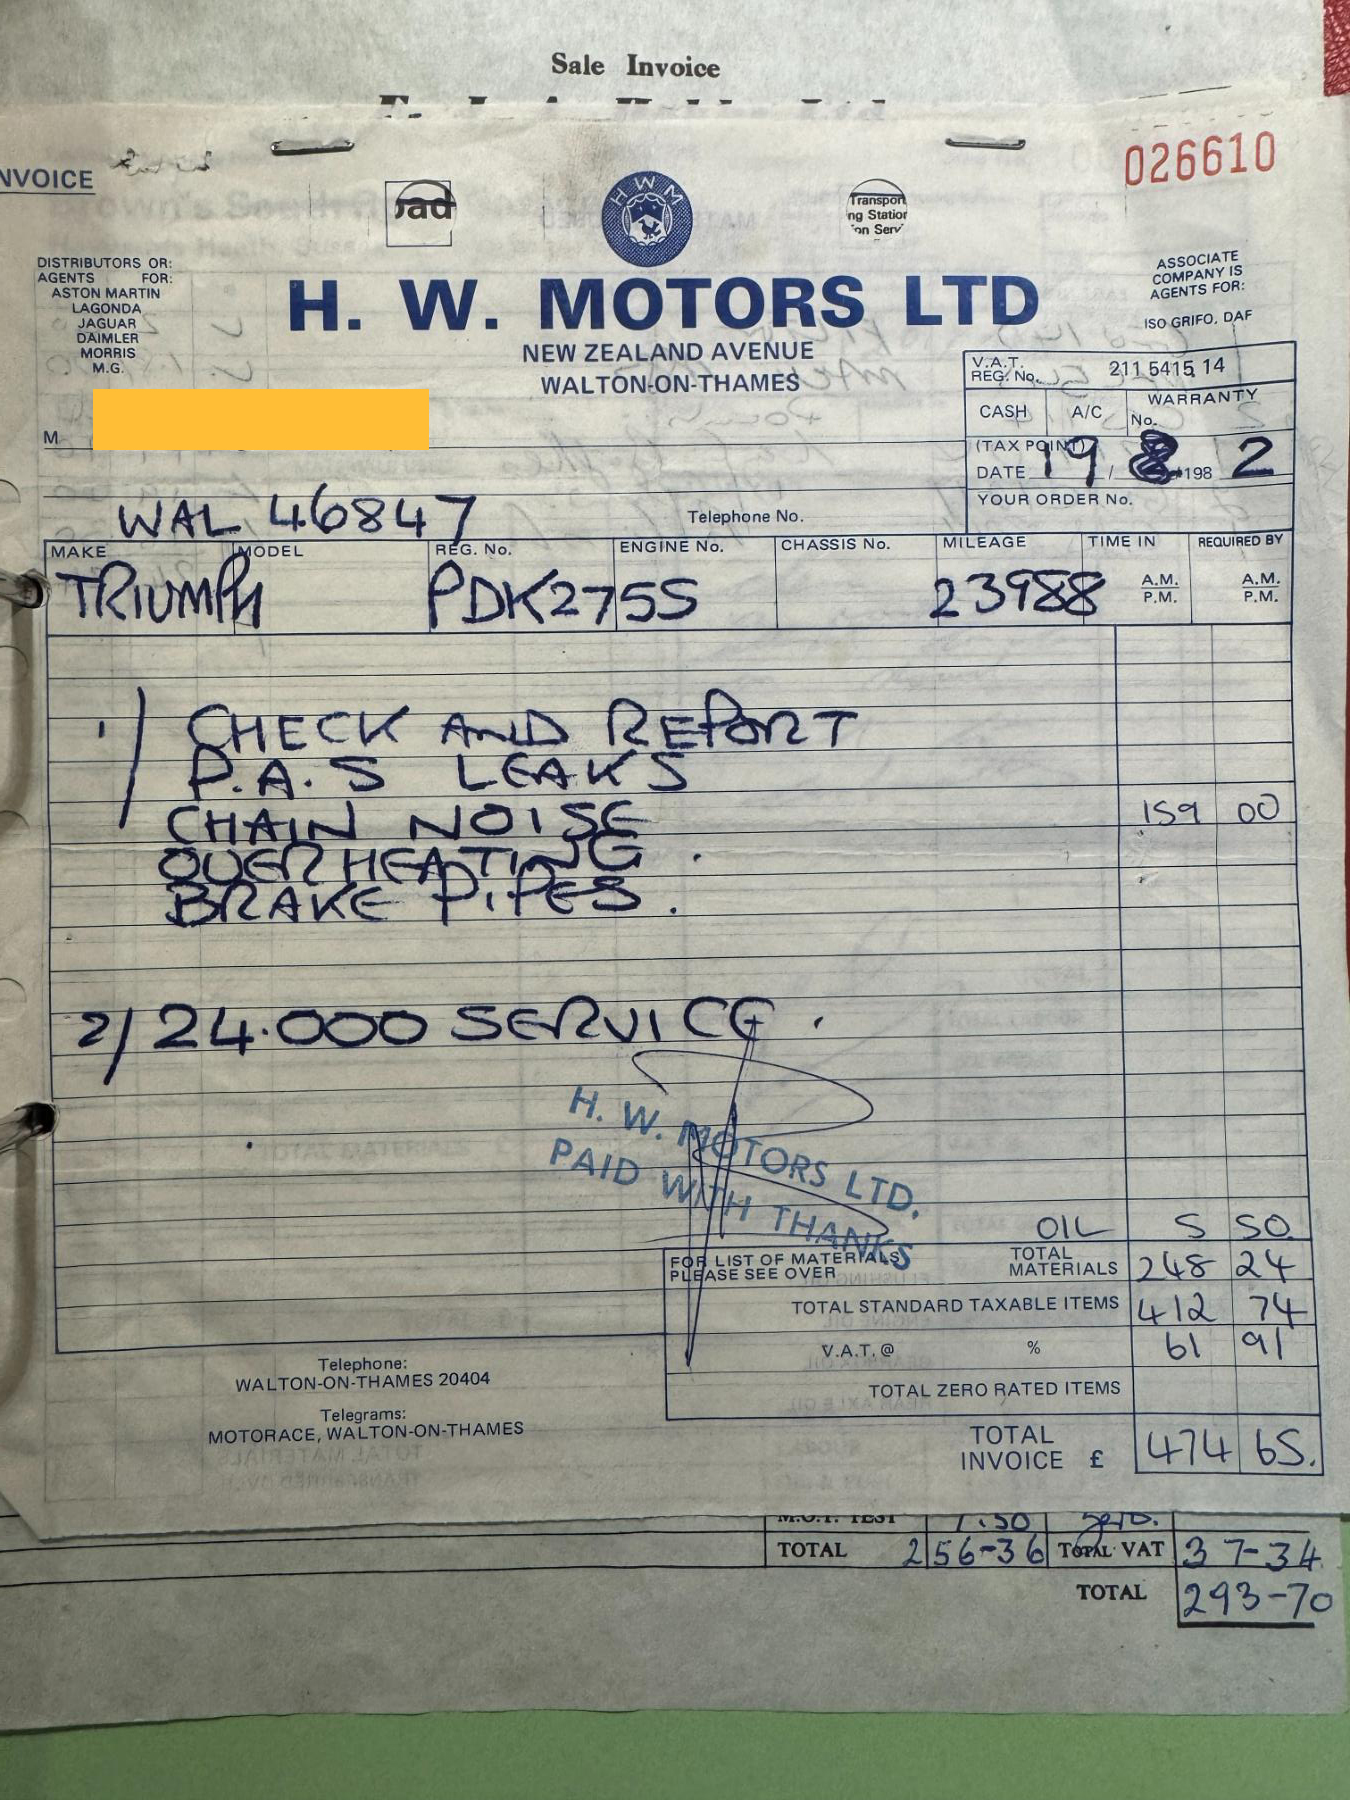 Sale Invoice
NVOICE
026610
oad
H W M
Transport
ng Station
on Serv
DISTRIBUTORS OR:
AGENTS FOR:
ASTON MARTIN
LAGONDA
JAGUAR
DAIMLER
MORRIS
M.G.
H. W. MOTORS LTD
NEW ZEALAND AVENUE
WALTON-ON-THAMES
ASSOCIATE
COMPANY IS
AGENTS FOR:
ISO GRIFO, DAF
V.A.T.
REG. No. 211 5415 14
CASH A/C WARRANTY
No.
M
(TAX POINT)
DATE 19 / 8 198 2
YOUR ORDER No.
WAL 46847 Telephone No.
MAKE MODEL REG. No. ENGINE No. CHASSIS No. MILEAGE TIME IN REQUIRED BY
TRIUMPH PDK275S 23988 A.M. A.M.
P.M. P.M.
1/ CHECK AND REPORT
P.A.S LEAKS
CHAIN NOISE 159 00
OVERHEATING .
BRAKE PIPES .
2/ 24.000 SERVICE .
H. W. MOTORS LTD.
PAID WITH THANKS
OIL 5 50
FOR LIST OF MATERIALS
PLEASE SEE OVER
TOTAL
MATERIALS 248 24
TOTAL STANDARD TAXABLE ITEMS 412 74
V.A.T. @ % 61 91
TOTAL ZERO RATED ITEMS
TOTAL
INVOICE £ 474 65.
Telephone:
WALTON-ON-THAMES 20404
Telegrams:
MOTORACE, WALTON-ON-THAMES
M.O.T. TEST 7.50 zero.
TOTAL 256-36 TOTAL VAT 37-34
TOTAL 293-70